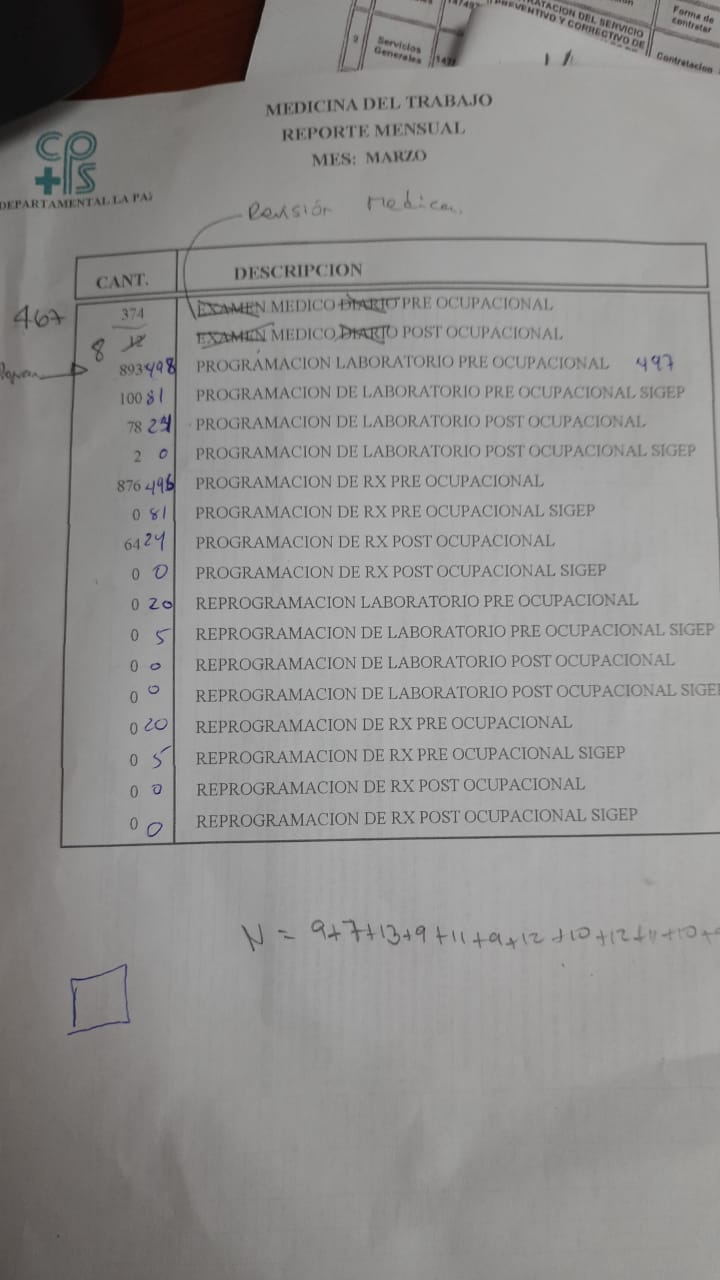 TRATACION DEL SERVICIO
PREVENTIVO Y CORRECTIVO DE
Forma de
contratar
2 Servicios
Generales
Contratacion
MEDICINA DEL TRABAJO
REPORTE MENSUAL
MES: MARZO
cps
DEPARTAMENTAL LA PAZ
Revisión Medica.
CANT. DESCRIPCION
467 374 EXAMEN MEDICO DIARIO PRE OCUPACIONAL
8 12 EXAMEN MEDICO DIARIO POST OCUPACIONAL
893 498 PROGRAMACION LABORATORIO PRE OCUPACIONAL 497
100 81 PROGRAMACION DE LABORATORIO PRE OCUPACIONAL SIGEP
78 24 PROGRAMACION DE LABORATORIO POST OCUPACIONAL
2 0 PROGRAMACION DE LABORATORIO POST OCUPACIONAL SIGEP
876 496 PROGRAMACION DE RX PRE OCUPACIONAL
0 81 PROGRAMACION DE RX PRE OCUPACIONAL SIGEP
64 24 PROGRAMACION DE RX POST OCUPACIONAL
0 0 PROGRAMACION DE RX POST OCUPACIONAL SIGEP
0 20 REPROGRAMACION LABORATORIO PRE OCUPACIONAL
0 5 REPROGRAMACION DE LABORATORIO PRE OCUPACIONAL SIGEP
0 0 REPROGRAMACION DE LABORATORIO POST OCUPACIONAL
0 0 REPROGRAMACION DE LABORATORIO POST OCUPACIONAL SIGEP
0 20 REPROGRAMACION DE RX PRE OCUPACIONAL
0 5 REPROGRAMACION DE RX PRE OCUPACIONAL SIGEP
0 0 REPROGRAMACION DE RX POST OCUPACIONAL
0 0 REPROGRAMACION DE RX POST OCUPACIONAL SIGEP
N = 9+7+13+9+11+9+12+10+12+11+10+